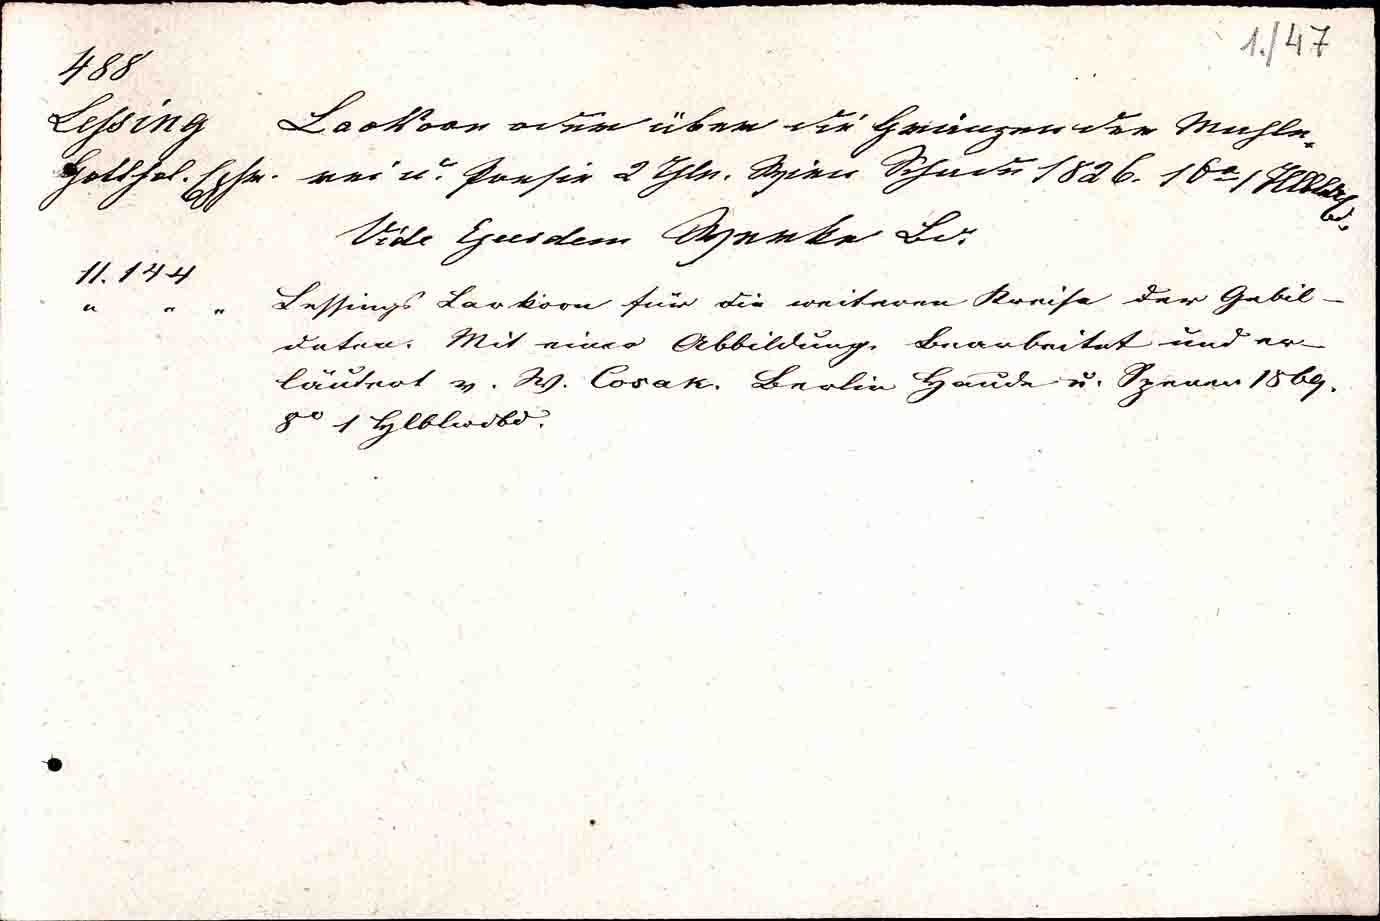 1./47
488
Lessing Laokoon oder über die Gränzen der Mahle-
Gotthol. Ephr. rei u. Poesie 2 Thle. Wien Schade 1826. 16° 1 Hlblwdbd.
Vide Ejusdem Werke Bd.
11.144
" " " Lessings Laokoon für die weiteren Kreise der Gebil-
deten. Mit einer Abbildung. Bearbeitet und er-
läutert v. W. Cosak. Berlin Haude u. Spener 1869.
8° 1 Hlblwdbd.